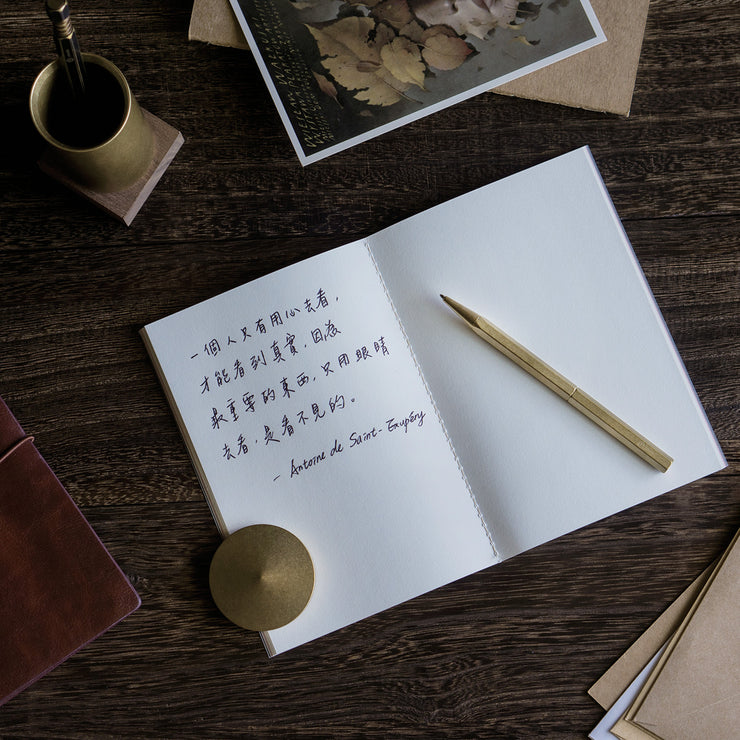 一個人只有用心去看,
才能看到真實,因為
最重要的東西,只用眼睛
去看,是看不見的。
- Antoine de Saint-Exupéry